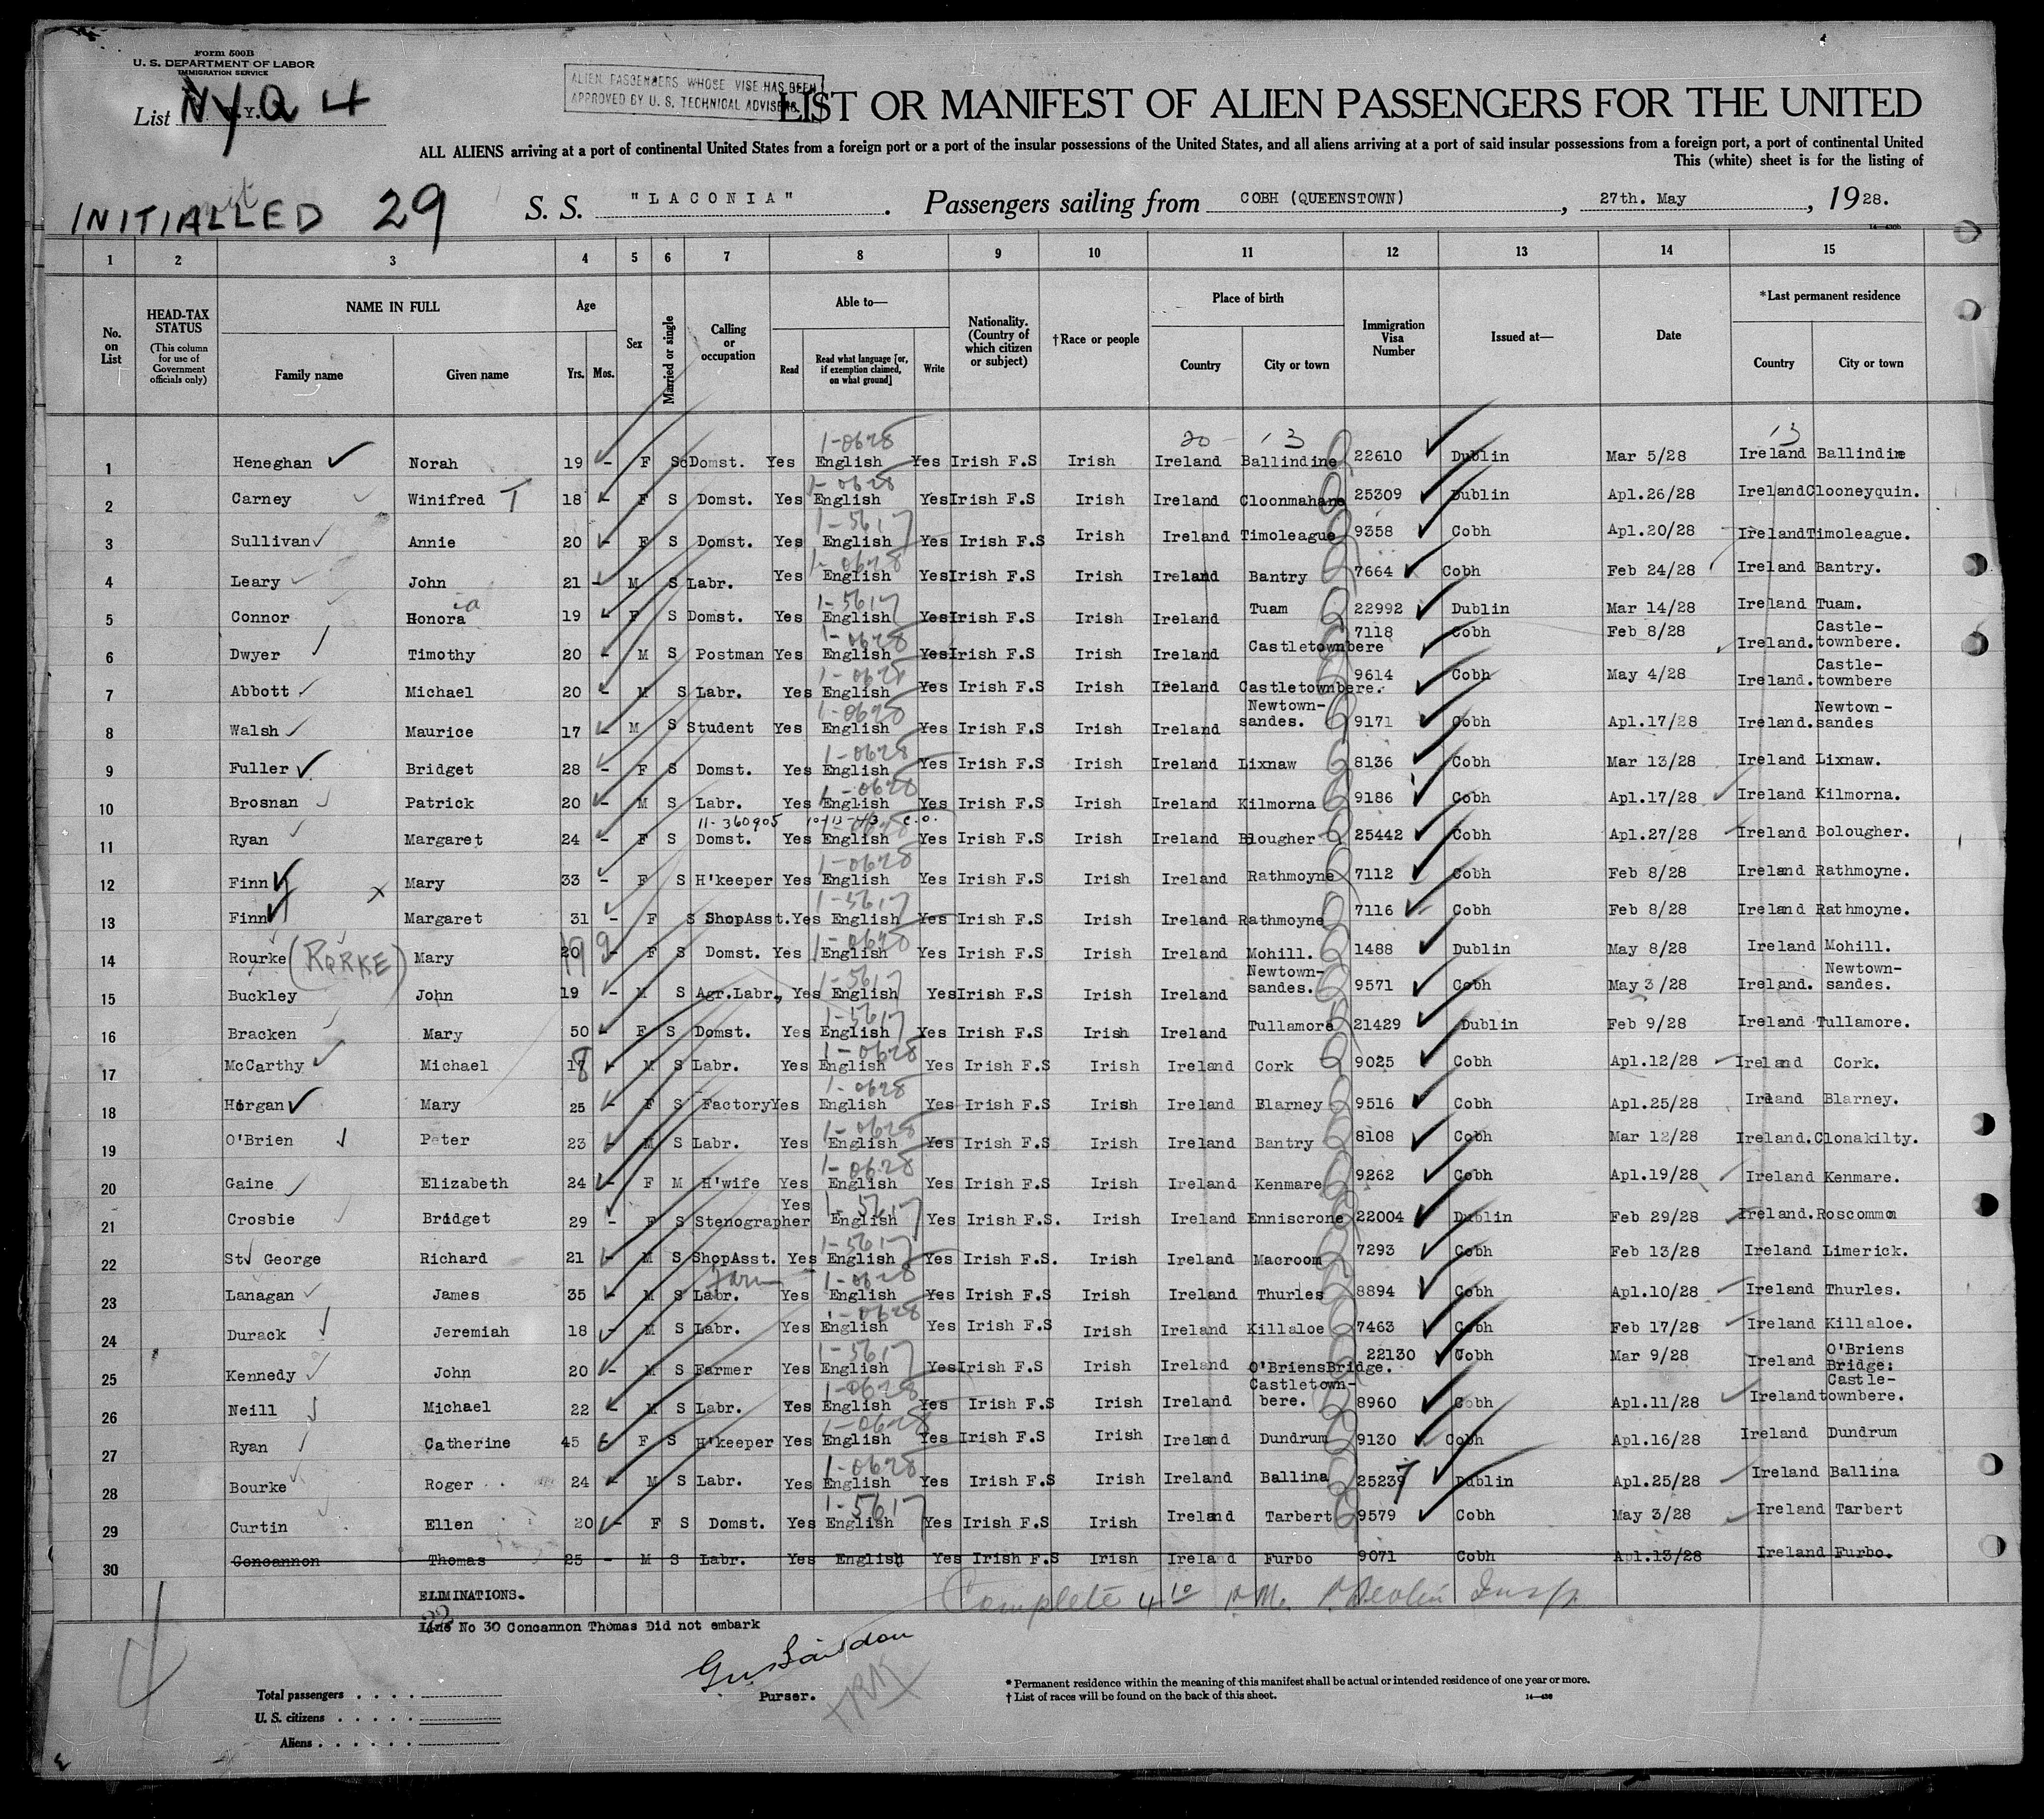 Form 500B
U. S. DEPARTMENT OF LABOR
IMMIGRATION SERVICE
List NYQ 4
ALIEN PASSENGERS WHOSE VISE HAS BEEN
APPROVED BY U. S. TECHNICAL ADVISERS.
LIST OR MANIFEST OF ALIEN PASSENGERS FOR THE UNITED
ALL ALIENS arriving at a port of continental United States from a foreign port or a port of the insular possessions of the United States, and all aliens arriving at a port of said insular possessions from a foreign port, a port of continental United
This (white) sheet is for the listing of
INITIALLED 29
S. S. "LACONIA". Passengers sailing from COBH (QUEENSTOWN), 27th. May, 1928.
14—430b
1 2 3 4 5 6 7 8 9 10 11 12 13 14 15
No. on List
HEAD-TAX STATUS (This column for use of Government officials only)
NAME IN FULL Family name Given name
Age Yrs. Mos.
Sex
Married or single
Calling or occupation
Able to— Read Read what language [or, if exemption claimed, on what ground] Write
Nationality. (Country of which citizen or subject)
†Race or people
Place of birth Country City or town
Immigration Visa Number
Issued at—
Date
*Last permanent residence Country City or town
1-0628 20 - 13 13
1 Heneghan Norah 19 - F S Domst. Yes English Yes Irish F.S Irish Ireland Ballindine 22610 Dublin Mar 5/28 Ireland Ballindine
1-0628
2 Carney Winifred T 18 - F S Domst. Yes English Yes Irish F.S Irish Ireland Cloonmahane 25309 Dublin Apl.26/28 Ireland Clooneyquin.
1-5617
3 Sullivan Annie 20 - F S Domst. Yes English Yes Irish F.S Irish Ireland Timoleague 9358 Cobh Apl.20/28 Ireland Timoleague.
1-0628
4 Leary John 21 - M S Labr. Yes English Yes Irish F.S Irish Ireland Bantry 7664 Cobh Feb 24/28 Ireland Bantry.
ia 1-5617
5 Connor Honora 19 - F S Domst. Yes English Yes Irish F.S Irish Ireland Tuam 22992 Dublin Mar 14/28 Ireland Tuam.
1-0628
6 Dwyer Timothy 20 - M S Postman Yes English Yes Irish F.S Irish Ireland Castletownbere 7118 Cobh Feb 8/28 Ireland. Castle-townbere.
1-0628
7 Abbott Michael 20 - M S Labr. Yes English Yes Irish F.S Irish Ireland Castletownbere. 9614 Cobh May 4/28 Ireland. Castle-townbere
1-0628
8 Walsh Maurice 17 - M S Student Yes English Yes Irish F.S Irish Ireland Newtown-sandes. 9171 Cobh Apl.17/28 Ireland. Newtown-sandes
1-0628
9 Fuller Bridget 28 - F S Domst. Yes English Yes Irish F.S Irish Ireland Lixnaw 8136 Cobh Mar 13/28 Ireland Lixnaw.
1-0628
10 Brosnan Patrick 20 - M S Labr. Yes English Yes Irish F.S Irish Ireland Kilmorna 9186 Cobh Apl.17/28 Ireland Kilmorna.
11-360905 10-13-43 C.O. 1-0628
11 Ryan Margaret 24 - F S Domst. Yes English Yes Irish F.S Irish Ireland Blougher 25442 Cobh Apl.27/28 Ireland Bolougher.
1-0628
12 Finn x Mary 33 - F S H'keeper Yes English Yes Irish F.S Irish Ireland Rathmoyne 7112 Cobh Feb 8/28 Ireland Rathmoyne.
1-5617
13 Finn Margaret 31 - F S ShopAsst. Yes English Yes Irish F.S Irish Ireland Rathmoyne 7116 Cobh Feb 8/28 Ireland Rathmoyne.
1-0628
14 Rourke (RORKE) Mary 20 19 - F S Domst. Yes English Yes Irish F.S Irish Ireland Mohill. 1488 Dublin May 8/28 Ireland Mohill.
1-5617
15 Buckley John 19 - M S Agr.Labr., Yes English Yes Irish F.S Irish Ireland Newtown-sandes. 9571 Cobh May 3/28 Ireland. Newtown-sandes.
1-5617
16 Bracken Mary 50 - F S Domst. Yes English Yes Irish F.S Irish Ireland Tullamore 21429 Dublin Feb 9/28 Ireland Tullamore.
1-0628
17 McCarthy Michael 18 - M S Labr. Yes English Yes Irish F.S Irish Ireland Cork 9025 Cobh Apl.12/28 Ireland Cork.
1-0628
18 Horgan Mary 25 - F S Factory Yes English Yes Irish F.S Irish Ireland Blarney 9516 Cobh Apl.25/28 Ireland Blarney.
1-0628
19 O'Brien Peter 23 - M S Labr. Yes English Yes Irish F.S Irish Ireland Bantry 8108 Cobh Mar 12/28 Ireland. Clonakilty.
1-0628
20 Gaine Elizabeth 24 - F M H'wife Yes English Yes Irish F.S Irish Ireland Kenmare 9262 Cobh Apl.19/28 Ireland Kenmare.
1-5617
21 Crosbie Bridget 29 - F S Stenographer Yes English Yes Irish F.S. Irish Ireland Enniscrone 22004 Dublin Feb 29/28 Ireland. Roscommon
1-5617
22 St George Richard 21 - M S ShopAsst. Yes English Yes Irish F.S. Irish Ireland Macroom 7293 Cobh Feb 13/28 Ireland Limerick.
farm 1-0628
23 Lanagan James 35 - M S Labr. Yes English Yes Irish F.S Irish Ireland Thurles 8894 Cobh Apl.10/28 Ireland Thurles.
1-0628
24 Durack Jeremiah 18 - M S Labr. Yes English Yes Irish F.S Irish Ireland Killaloe 7463 Cobh Feb 17/28 Ireland Killaloe.
1-5617
25 Kennedy John 20 - M S Farmer Yes English Yes Irish F.S Irish Ireland O'BriensBridge. 22130 Cobh Mar 9/28 Ireland O'Briens Bridge:
1-0628
26 Neill Michael 22 - M S Labr. Yes English Yes Irish F.S Irish Ireland Castletown-bere. 8960 Cobh Apl.11/28 Ireland Castle-townbere.
1-0628
27 Ryan Catherine 45 - F S H'keeper Yes English Yes Irish F.S Irish Ireland Dundrum 9130 Cobh Apl.16/28 Ireland Dundrum
1-0628
28 Bourke Roger 24 - M S Labr. Yes English Yes Irish F.S Irish Ireland Ballina 25237 Dublin Apl.25/28 Ireland Ballina
1-5617
29 Curtin Ellen 20 - F S Domst. Yes English Yes Irish F.S Irish Ireland Tarbert 9579 Cobh May 3/28 Ireland Tarbert
30 Concannon Thomas 25 - M S Labr. Yes English Yes Irish F.S Irish Ireland Furbo 9071 Cobh Apl.13/28 Ireland Furbo.
ELIMINATIONS.
Complete 4 10 P.M. Insp.
22
Line No 30 Concannon Thomas Did not embark
Purser.
Total passengers . . . .
U. S. citizens . . . . .
Aliens . . . . . .
* Permanent residence within the meaning of this manifest shall be actual or intended residence of one year or more.
† List of races will be found on the back of this sheet.
14—430